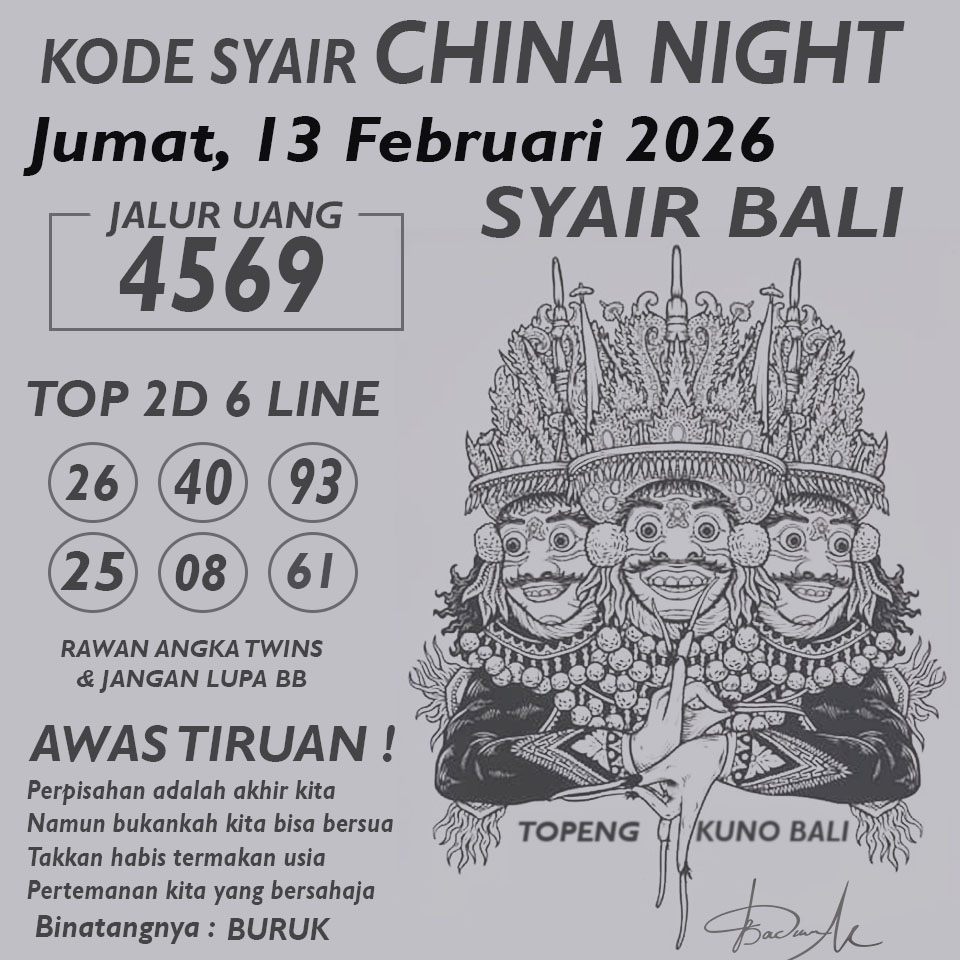 KODE SYAIR CHINA NIGHT
Jumat, 13 Februari 2026
SYAIR BALI
JALUR UANG
4569
TOP 2D 6 LINE
26 40 93
25 08 61
RAWAN ANGKA TWINS
& JANGAN LUPA BB
AWAS TIRUAN !
Perpisahan adalah akhir kita
Namun bukankah kita bisa bersua
Takkan habis termakan usia
Pertemanan kita yang bersahaja
Binatangnya : BURUK
TOPENG KUNO BALI